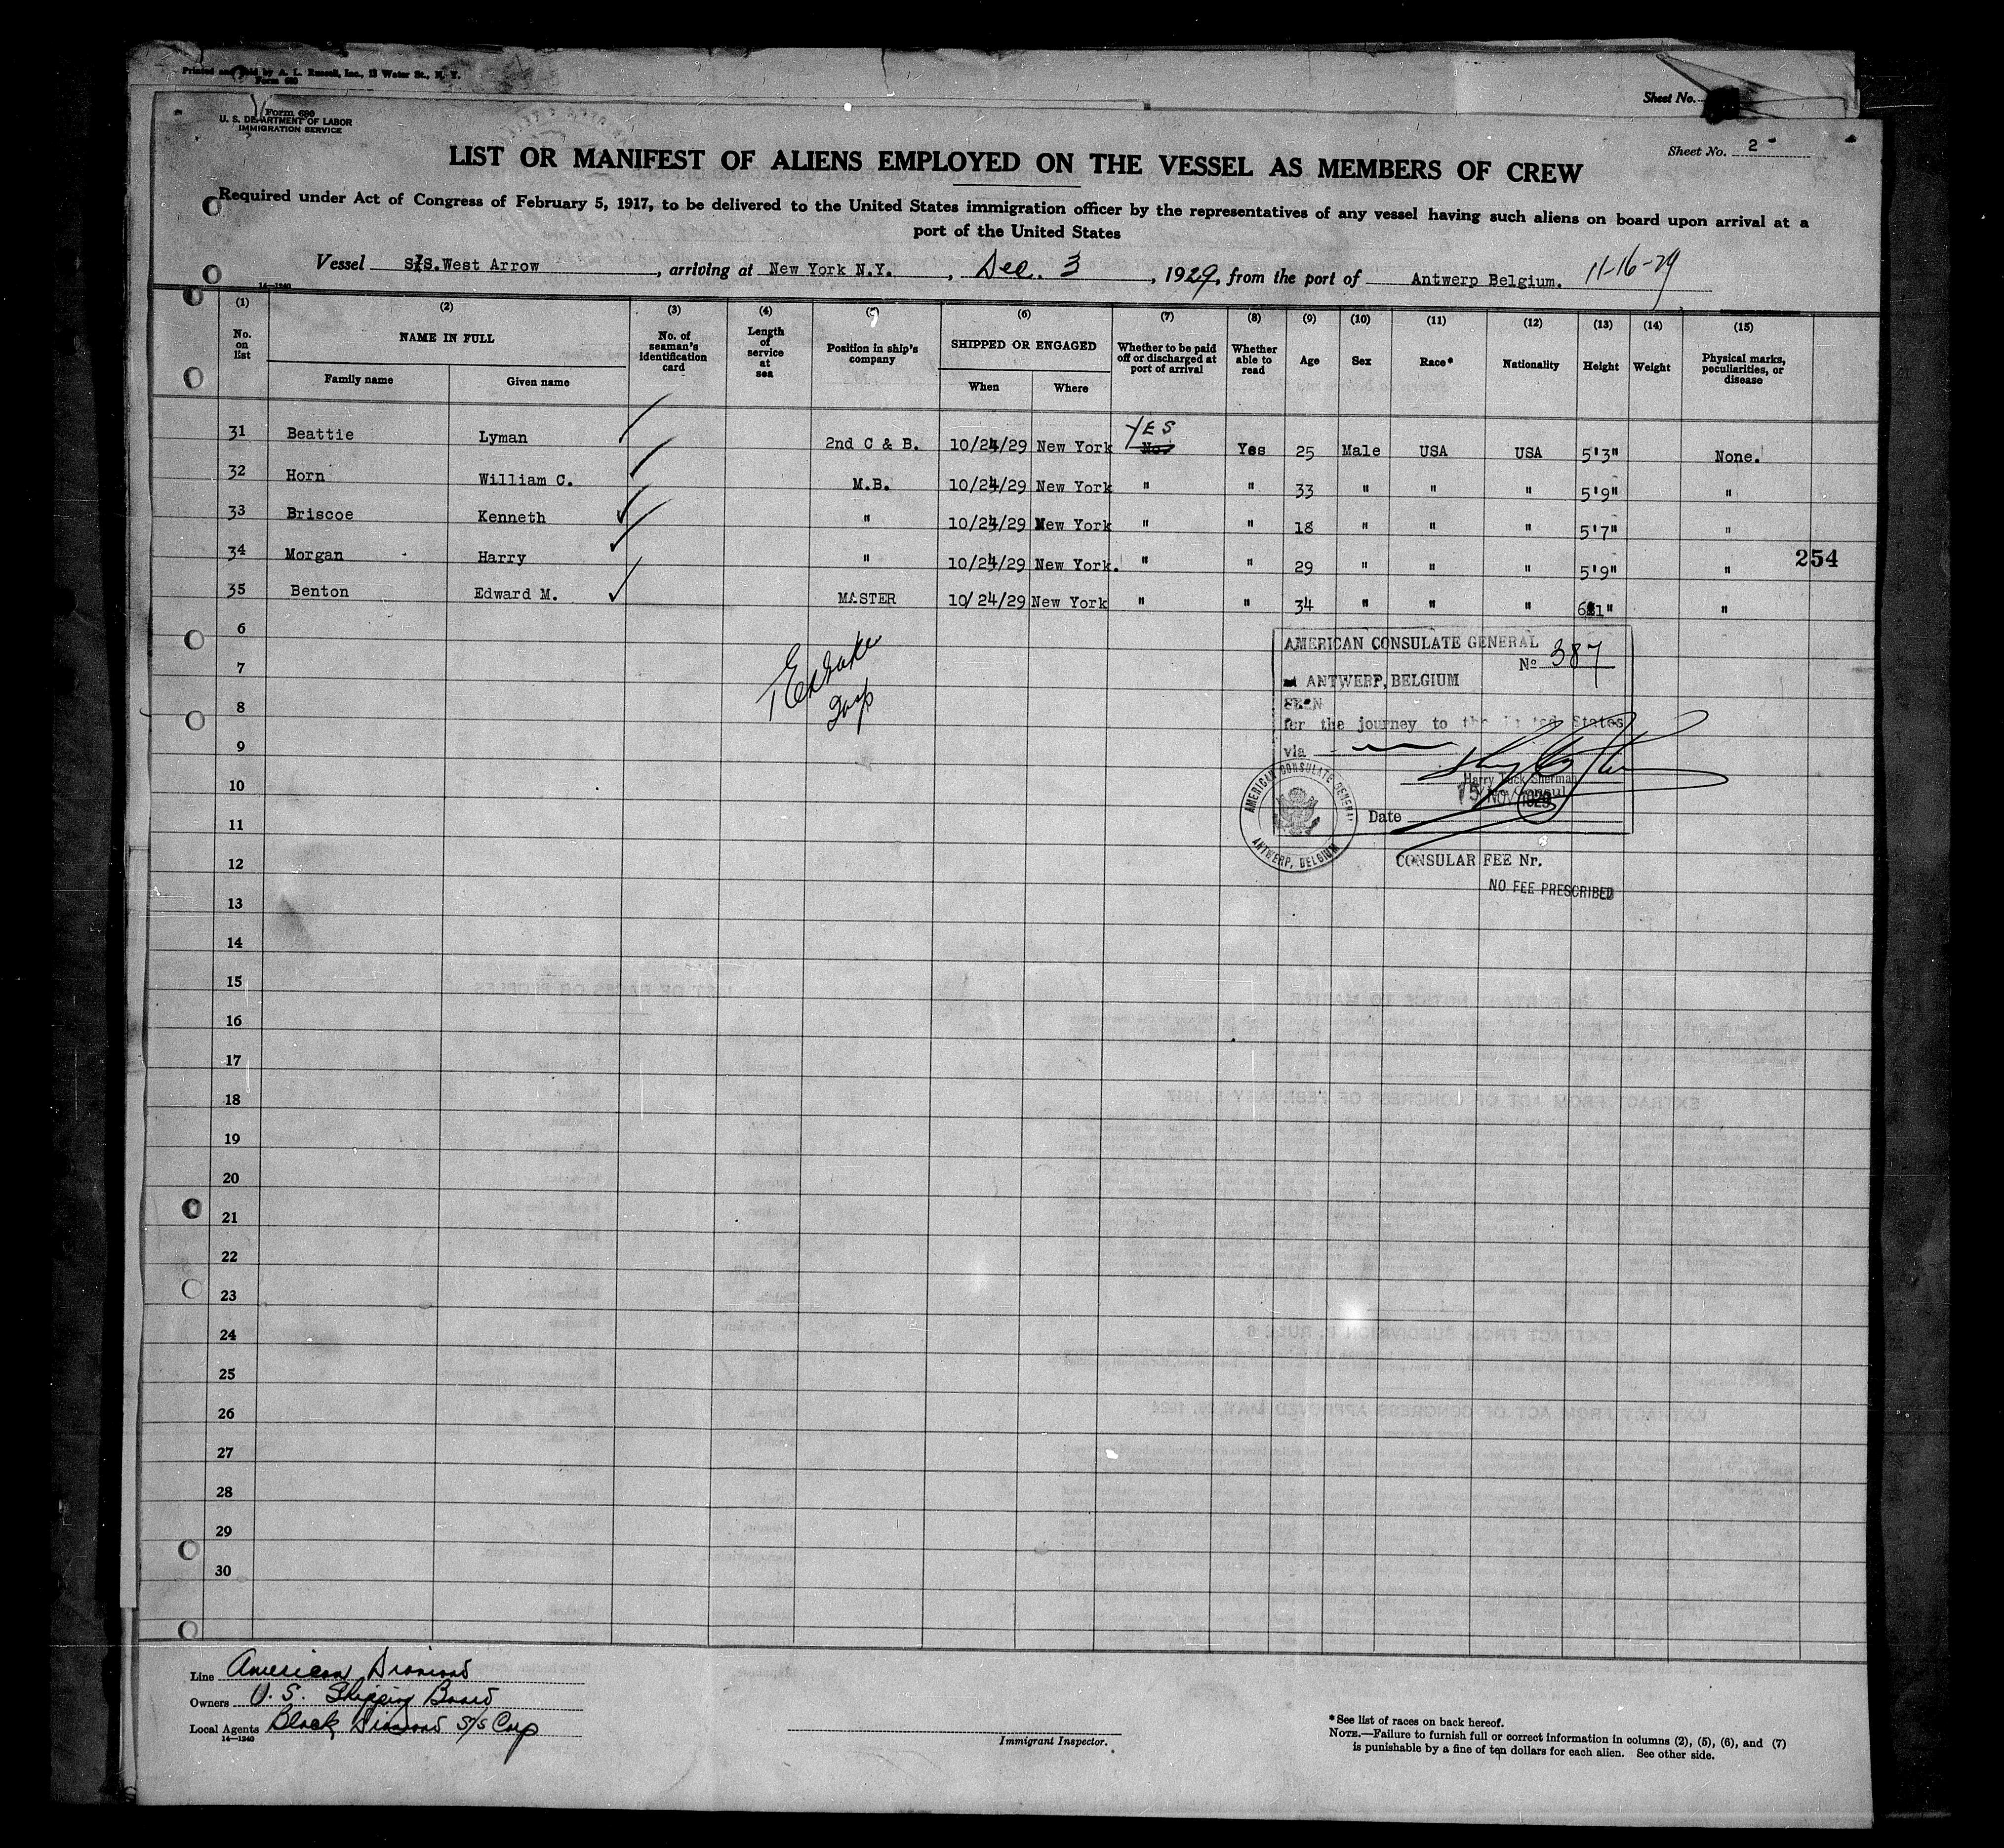 Printed and Sold by A. L. Russell, Inc., 12 Water St., N. Y.
Form 680
Sheet No.
Form 680
U. S. DEPARTMENT OF LABOR
IMMIGRATION SERVICE
Sheet No. 2
LIST OR MANIFEST OF ALIENS EMPLOYED ON THE VESSEL AS MEMBERS OF CREW
Required under Act of Congress of February 5, 1917, to be delivered to the United States immigration officer by the representatives of any vessel having such aliens on board upon arrival at a
port of the United States
Vessel S/S. West Arrow, arriving at New York N.Y., Dec. 3, 1929, from the port of Antwerp Belgium. 11-16-29
14-1240
(1) (2) (3) (4) (5) (6) (7) (8) (9) (10) (11) (12) (13) (14) (15)
No. on list NAME IN FULL No. of seaman's identification card Length of service at sea Position in ship's company SHIPPED OR ENGAGED Whether to be paid off or discharged at port of arrival Whether able to read Age Sex Race* Nationality Height Weight Physical marks, peculiarities, or disease
Family name Given name When Where
YES
31 Beattie Lyman 2nd C & B. 10/24/29 New York No. Yes 25 Male USA USA 5'3" None.
32 Horn William C. M.B. 10/24/29 New York " " 33 " " " 5'9" "
33 Briscoe Kenneth " 10/24/29 New York " " 18 " " " 5'7" "
34 Morgan Harry " 10/24/29 New York. " " 29 " " " 5'9" "
254
35 Benton Edward M. MASTER 10/24/29 New York " " 34 " " " 6'1" "
6
7
8
9
10
11
12
13
14
15
16
17
18
19
20
21
22
23
24
25
26
27
28
29
30
AMERICAN CONSULATE GENERAL
No 387
ANTWERP, BELGIUM
SEEN
for the journey to the United States
via
Harry Tuck Sherman
Consul
15 NOV 1929
Date
AMERICAN CONSULATE GENERAL
ANTWERP, BELGIUM
CONSULAR FEE Nr.
NO FEE PRESCRIBED
Line American Diamond
Owners U. S. Shipping Board
Local Agents Black Diamond S/S Corp
14-1240
Immigrant Inspector.
*See list of races on back hereof.
NOTE.—Failure to furnish full or correct information in columns (2), (5), (6), and (7)
is punishable by a fine of ten dollars for each alien. See other side.